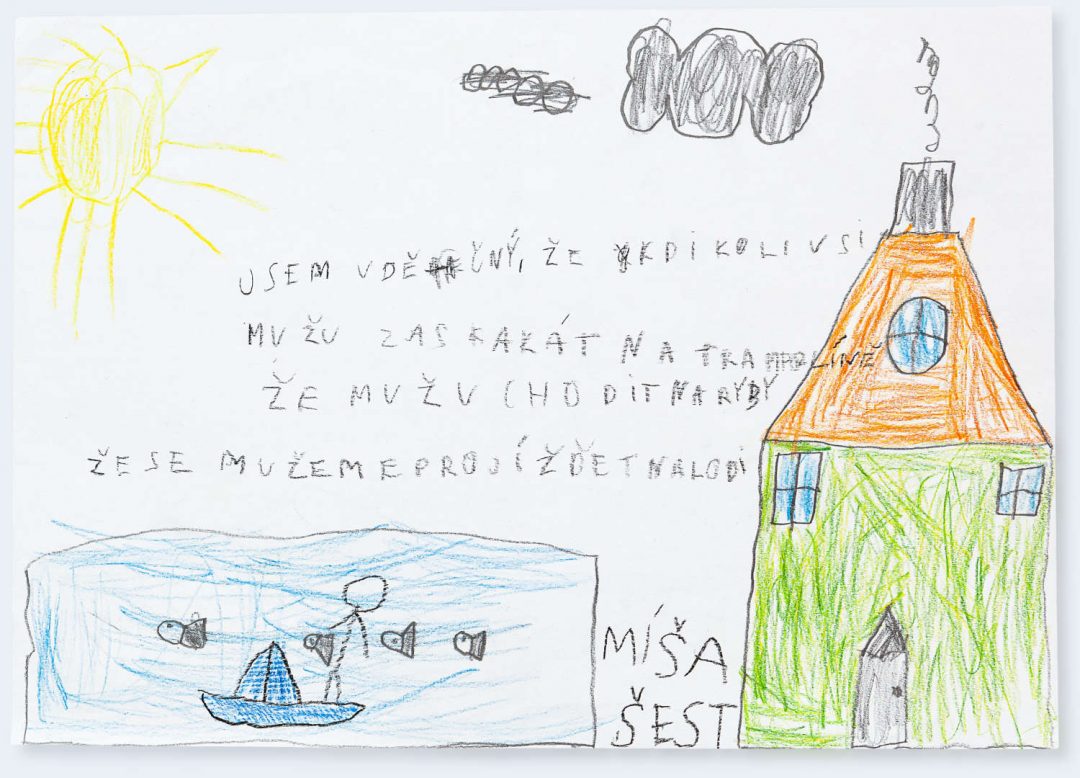 JSEM VDĚČNÝ, ŽE KDIKOLI V SI
MUŽU ZASKAKÁT NA TRAMPOLÍNĚ
ŽE MUŽU CHODIT NA RYBY
ŽE SE MUŽEME PROJÍŽDĚT NA LODI
MÍŠA
ŠEST